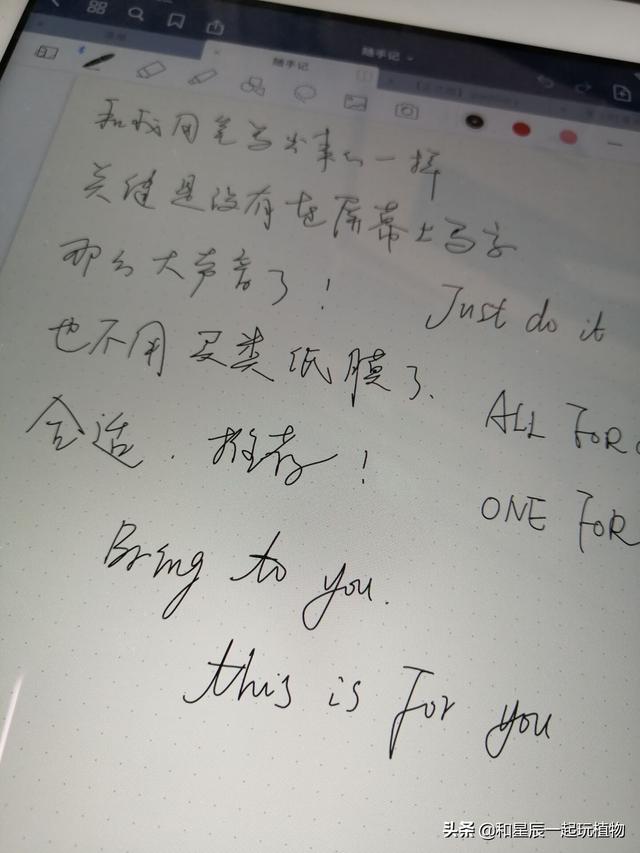 随手记
随手记
和我用笔写出来的一样
关键是没有在屏幕上写字
那么大声音了！
Just do it
也不用买类纸膜了.
ALL FOR
合适.推荐！
ONE FOR
Bring to you.
this is For you
头条 @和星辰一起玩植物